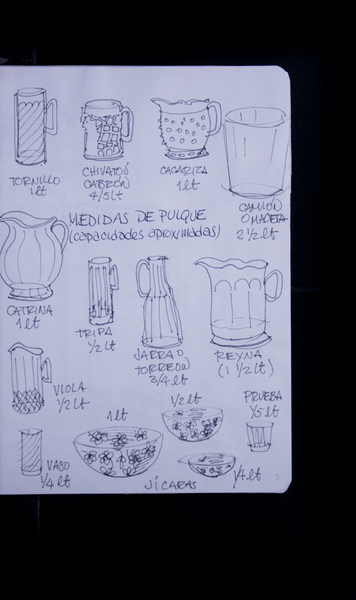 TORNILLO
1 lt
CHIVATO Ó
CABRÓN
4/5 lt
CACARIZA
1 lt
CAMIÓN
O MACETA
2 1/2 lt
MEDIDAS DE PULQUE
(capacidades aproximadas)
CATRINA
1 lt
TRIPA
1/2 lt
JARRA O
TORREÓN
3/4 lt
REYNA
(1 1/2 lt)
VIOLA
1/2 lt
1 lt
1/2 lt
PRUEBA
1/5 lt
VASO
1/4 lt
JÍCARAS
1/4 lt